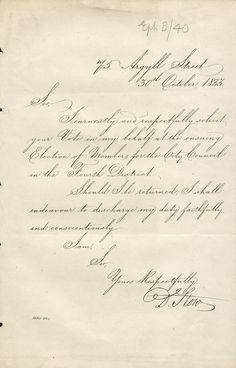 Eph B/40
75 Argyll Street
30th October, 1833.
Sir,
I earnestly and respectfully solicit
your Vote in my behalf at the ensuing
Election of Members for the City Council
in the Fourth District.
Should I be returned, I shall
endeavour to discharge my duty faithfully
and conscientiously
I am,
Sir,
Yours Respectfully
D. Stow